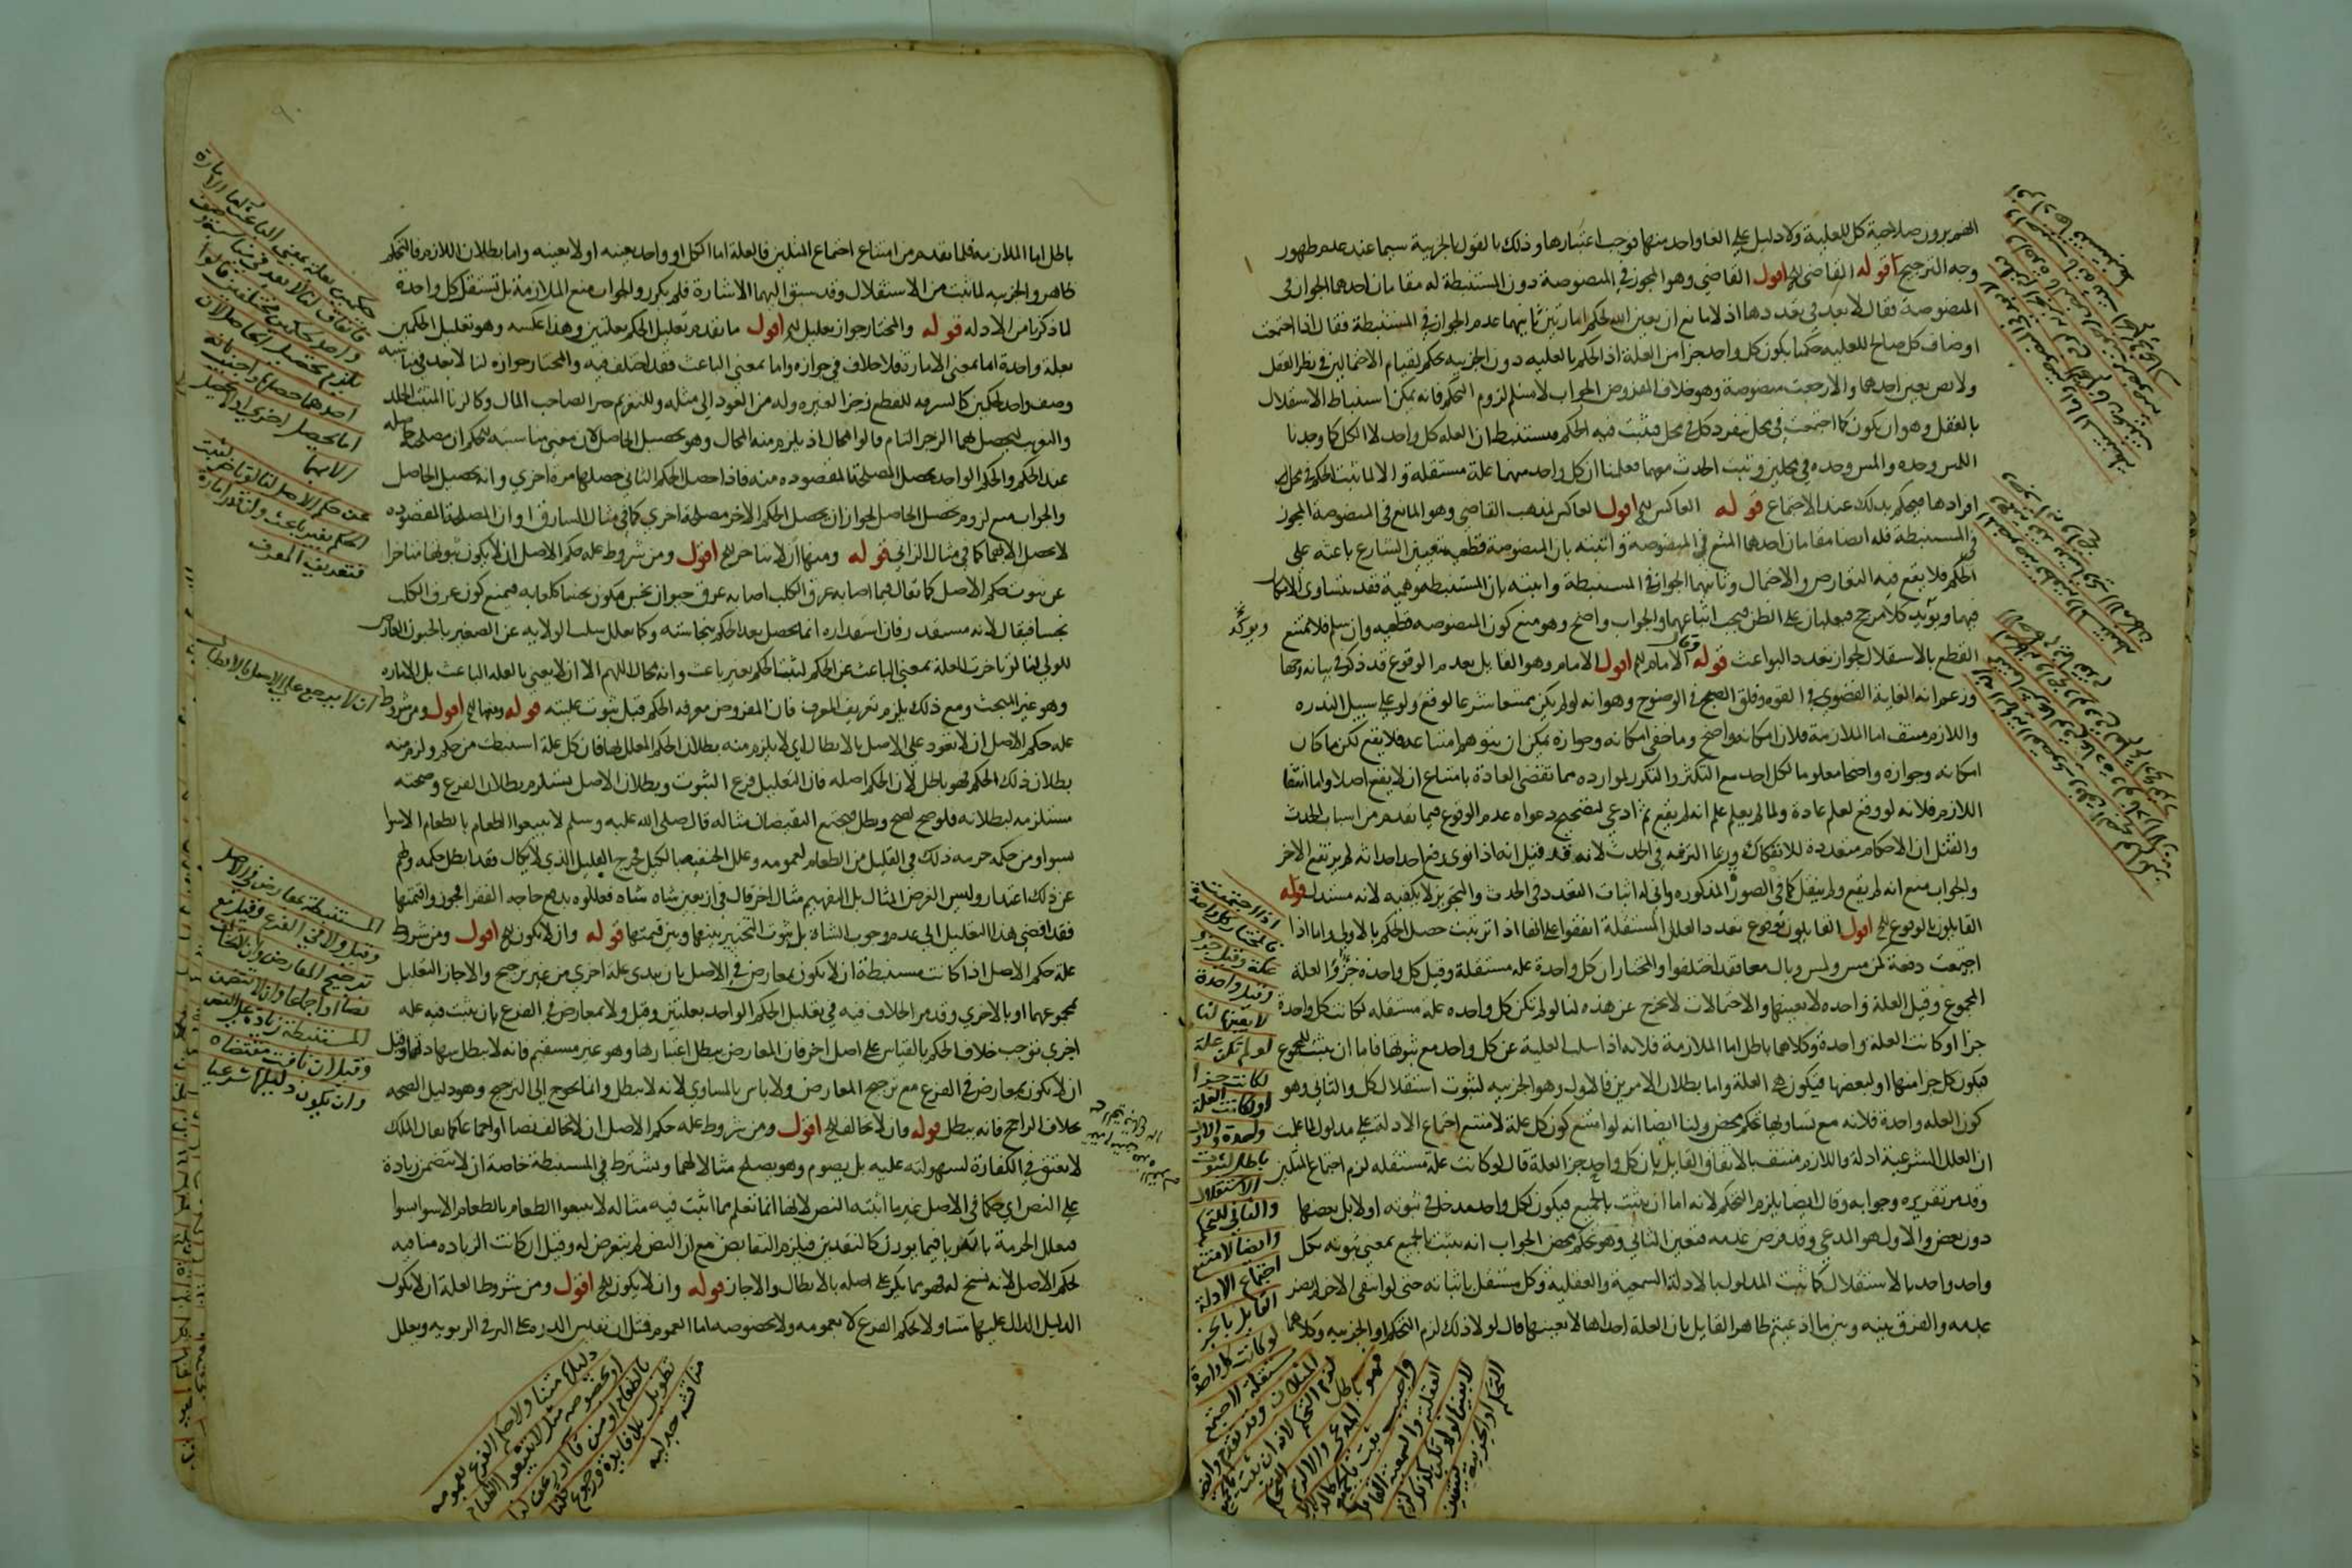 الخصم يرون صلاحية كل للعلية ولا دليل على الغا واحد منها فوجب اعتبارها وذلك بالقول بالجزئية سيما عند عدم ظهور
وجه الترجيح قوله القاضي الخ اقول القاضي وهو المجوز في المنصوصة دون المستنبطة له مقامان احدهما الجواز في
المنصوصة فقال لا بعد في تعددها اذ لا مانع ان يعين الله لحكم امارتين ثانيهما عدم الجواز في المستنبطة فقال اذا اجتمعت
اوصاف كل صالح للعلية حكمنا بكون كل واحد جزا من العلة اذ الحكم بالعلية دون الجزئية تحكم لقيام الاحتمالين في نظر العقل
ولا نص بعين احدهما والا رجعت منصوصة وهو خلاف المفروض الجواب لا نسلم لزوم التحكم فانه يمكن استنباط الاستقلال
بالعقل وهو ان يكون كما اجتمعت في محل ينفرد كل في محل فيثبت فيه الحكم فيستنبط ان العلة كل واحد لا الكل كما وجدنا
اللمس وحده والمس وحده في محلين وثبت الحدث معهما فعلمنا ان كل واحد منهما علة مستقلة والا لما ثبت الحكم في محل
افرادها فيحكم بذلك عند الاجتماع قوله العاكس الخ اقول العاكس لمذهب القاضي وهو المانع في المنصوصة المجوز
في المستنبطة فله ايضا مقامان احدهما المنع في المنصوصة واثبته بان المنصوصة قطعية بتعيين الشارع باعثه على
الحكم فلا يقع فيه التعارض والاحتمال وثانيهما الجواز في المستنبطة واثبته بان المستنبطة وهمية فقد يتساوى الامكان
فيهما ويؤيد كلا مرجح فيغلبان على الظن فيجب اتباعهما والجواب واضح وهو منع كون المنصوصة قطعية وان سلم فلا يمتنع
القطع بالاستقلال لجواز تعدد البواعث قوله وقال الامام الخ اقول الامام وهو القايل بعدم الوقوع قد ذكر في بيانه وجها
وزعم انه الغاية القصوى في القوة وفلق الصبح في الوضوح وهو انه لو لم يكن ممتنعا شرعا لوقع ولو على سبيل الندرة
واللازم منتف اما الملازمة فلان امكانه واضح وما خفي امكانه وجوازه يمكن ان يتوهم امتناعه فلا يقع لكن ما كان
امكانه وجوازه واضحا معلوما لكل احد مع التكثر والتكرر لموارده مما تقضى العادة بامتناع ان لا يقع اصلا واما انتفا
اللازم فلانه لو وقع لعلم عادة ولما لم يعلم علم انه لم يقع ثم ادعى لتصحيح دعواه عدم الوقوع فيما تقدم من اسباب الحدث
والقتل ان الاحكام متعددة للانفكاك وربما التزمه في الحدث لانه قد قيل انه اذا نوى رفع احد احداثه لم يرتفع الاخر
والجواب منع انه لم يقع ولم ينقل كما في الصور المذكورة واني له اثبات التعدد في الحدث والتجويز لا يكفيه لانه مستدل قوله
القايلون بالوقوع الخ اقول القايلون بوقوع تعدد العلل المستقلة اتفقوا على انها اذا ترتبت حصل الحكم بالاولى واما اذا
اجتمعت دفعة كمن مس ولمس وبال معا فقد اختلفوا والمختار ان كل واحدة علة مستقلة وقيل كل واحدة جزؤ العلة
المجموع وقيل العلة واحدة لا بعينها والاحتمالات لا تخرج عن هذه لنا لو لم تكن كل واحدة علة مستقلة لكانت كل واحدة
جزا او كانت العلة واحدة وكلاهما باطل اما الملازمة فلانه اذا سلب العلية عن كل واحد مع ثبوتها فاما ان يثبت للمجموع
فيكون كل جزا منها او لبعضها فيكون هي العلة واما بطلان الامرين فالاول وهو الجزئية لثبوت استقلال كل والثاني وهو
كون العلة واحدة فلانه مع تساويها تحكم محض ولنا ايضا انه لو امتنع كون كل علة لامتنع اجتماع الادلة على مدلول لما علمت
ان العلل الشرعية ادلة واللازم منتف بالاتفاق القايل بان كل واحد جز العلة قال لو كانت علة مستقلة لزم اجتماع المثلين
وقد مر تقريره وجوابه وقال ايضا يلزم التحكم لانه اما ان يثبت بالجميع فيكون لكل واحد مدخل في ثبوته او لا بل ببعضها
دون بعض والاول هو المدعى وقد فرض عدمه فتعين الثاني وهو تحكم محض الجواب انه يثبت بالجميع بمعنى ثبوته بكل
واحد واحد بالاستقلال كما يثبت المدلول بالادلة السمعية والعقلية وكل مستقل باثباته حتى لو انتفى الاخر لم يضر
عدمه والفرق بينه وبين ما ادعيتم ظاهر القايل بان العلة احداها لا بعينها قال لولا ذلك لزم التحكم او الجزئية وكلاهما
ويؤكد
اذا اجتمعت
فالمختار كل واحدة
علة وقيل جزو
وقيل واحدة
لا بعينها لنا
لو لم تكن علة
لكانت جزا
او لكانت العلة
واحدة والاول
باطل لثبوت
الاستقلال
والثاني للتحكم
وايضا لامتنع
اجتماع الادلة
القايل بالجز
لو كانت كل واحدة
مستقلة لاجتمع
المثلان وقد تقدم وايضا
لزم التحكم لانه ان ثبت بالجميع
فهو المدعى والا لزم التحكم
واجيب ثبت بالجميع كالادلة
العقلية والسمعية القايل
لا بعينها لو لم يكن كذلك لزم
التحكم او الجزئية فيتعين
باطل اما الملازمة فلما تقدم من امتناع اجتماع المثلين فالعلة اما الكل او واحد بعينه او لا بعينه واما بطلان اللازم فالتحكم
ظاهر والجزئية لما ثبت من الاستقلال وقد سبق اليهما الاشارة فلم يكرر والجواب منع الملازمة بل تستقل كل واحدة
لما ذكرنا من الادلة قوله والمختار جواز تعليل الخ اقول ما تقدم تعليل الحكم بعلتين وهذا عكسه وهو تعليل الحكمين
بعلة واحدة اما بمعنى الامارة فلا خلاف في جوازه واما بمعنى الباعث فقد اختلف فيه والمختار جوازه لنا لا بعد في مناسبة
وصف واحد لحكمين كالسرقة للقطع زجرا لغيره وله من العود الى مثله وللتغريم جبرا لصاحب المال وكالزنا المثبت الجلد
والتغريب ليحصل بهما الزجر التام قالوا محال اذ يلزم منه المحال وهو تحصيل الحاصل لان معنى مناسبته للحكم ان مصلحته حاصلة
عند الحكم والحكم الواحد يحصل المصلحة المقصودة منه فاذا حصل الحكم الثاني حصلها مرة اخرى وانه تحصيل الحاصل
والجواب منع لزوم تحصيل الحاصل لجواز ان يحصل الحكم الاخر مصلحة اخرى كما في مثال السارق او ان المصلحة المقصودة
لا تحصل الا بهما كما في مثال الزاني قوله ومنها ان لا يتاخر الخ اقول ومن شروط علة حكم الاصل ان لا يكون ثبوتها متاخرا
عن ثبوت حكم الاصل كما يقال فيما اصابه عرق الكلب اصابه عرق حيوان نجس فيكون نجسا كلعابه فيمنع كون عرق الكلب
نجسا فيقال لانه مستقذر فان استقذاره انما يحصل بعد الحكم بنجاسته وكما يعلل سلب الولاية عن الصغير بالجنون العارض
للولي لنا لو تاخرت العلة بمعنى الباعث عن الحكم لثبت الحكم بغير باعث وانه محال اللهم الا ان لا يعني بالعلة الباعث بل الامارة
وهو غير المبحث ومع ذلك يلزم تعريف المعرف فان المفروض معرفة الحكم قبل ثبوت عليته قوله ومنها الخ اقول ومن شروط
علة حكم الاصل ان لا تعود على الاصل بالابطال اي لا يلزم منه بطلان الحكم المعلل بها فان كل علة استنبطت من حكم ولزم منه
بطلان ذلك الحكم فهو باطل لان الحكم اصله فان التعليل فرع الثبوت وبطلان الاصل يستلزم بطلان الفرع وصحته
مستلزمة لبطلانه فلو صح لصح وبطل فيجتمع النقيضان مثاله قال صلى الله عليه وسلم لا تبيعوا الطعام بالطعام الا سوا
بسوا ومن حكمه حرمة ذلك في القليل من الطعام لعمومه وعلل الحنفية بالكيل فخرج القليل الذي لا يكال فقد ابطل حكمه ولهم
عن ذلك اعتذار وليس الغرض المثال بل التفهيم مثال اخر قال في اربعين شاة شاة فعللوه بدفع حاجة الفقرا فجوزوا قيمتها
فقد افضى هذا التعليل الى عدم وجوب الشاة بل ثبوت التخيير بينها وبين قيمتها قوله وان لا تكون الخ اقول ومن شروط
علة حكم الاصل اذا كانت مستنبطة ان لا يكون بمعارض في الاصل بان يبدى علة اخرى من غير ترجيح والا جاز التعليل
بمجموعهما او بالاخرى وقد مر الخلاف فيه في تعليل الحكم الواحد بعلتين وقيل ولا بمعارض في الفرع بان يثبت فيه علة
اخرى توجب خلاف الحكم بالقياس على اصل اخر فان المعارض يبطل اعتبارها وهو غير مستقيم فانه لا يبطل شهادتها وقيل
ان لا تكون بمعارض في الفرع مع ترجيح المعارض ولا باس بالمساوي لانه لا يبطل وانما يحوج الى الترجيح وهو دليل الصحة
بخلاف الراجح فانه يبطل قوله وان لا تخالف الخ اقول ومن شروط علة حكم الاصل ان لا تخالف نصا او اجماعا كما يقال الملك
لا يعتق في الكفارة لسهولته عليه بل يصوم وهو يصلح مثالا لهما ويشترط في المستنبطة خاصة ان لا تتضمن زيادة
على النص اي حكما في الاصل غير ما اثبته النص لانها انما تعلم مما اثبت فيه مثاله لا تبيعوا الطعام بالطعام الا سوا بسوا
فتعلل الحرمة بانه ربا فيما يوزن كالنقدين فيلزم التقابض مع ان النص لم يتعرض له وقيل ان كانت الزيادة منافية
لحكم الاصل لانه نسخ له فهو مما يكر على اصله بالابطال والا جاز قوله وان لا يكون الخ اقول ومن شروط العلة ان لا يكون
الدليل الدال عليها متناولا لحكم الفرع لا بعمومه ولا بخصوصه اما العموم فمثل ان نقيس الذرة على البر في الربوية ويعلل
حكمين بعلة بمعنى الباعث اما الامارة
فاتفاق لنا لا بعد في مناسبة وصف
واحد لحكمين مختلفين قالوا
يلزم تحصيل الحاصل لان
احدهما حصلها واجيب بانه
اما يحصل اخرى او لا يحصل
الا بهما
عن حكم الاصل لنا لو تاخرت لثبت
الحكم بغير باعث وان قدر امارة
فتعريف المعرف
ان لا يرجع على الاصل بالابطال
المستنبطة بمعارض في الاصل
وقيل ولا في الفرع وقيل مع
ترجيح المعارض وان لا تخالف
نصا او اجماعا وان لا تتضمن
المستنبطة زيادة على النص
وقيل ان نافت مقتضاه
وان يكون دليلها شرعيا
دليلها متناولا حكم الفرع بعمومه
او بخصوصه مثل لا تبيعوا الطعام
بالطعام او من قا او رعف لنا
تطويل بلا فايدة ورجوع قلنا
مناقشة جدلية